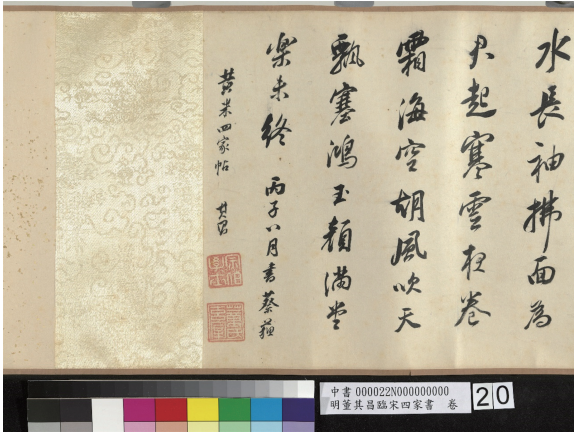 水長袖拂面為
君起寒雲夜卷
霜海空胡風吹天
飄塞鴻玉顏滿堂
樂未終 丙子八月書蔡蘇
黃米四家帖 其昌
中書 000022N000000000
明董其昌臨宋四家書 卷
20